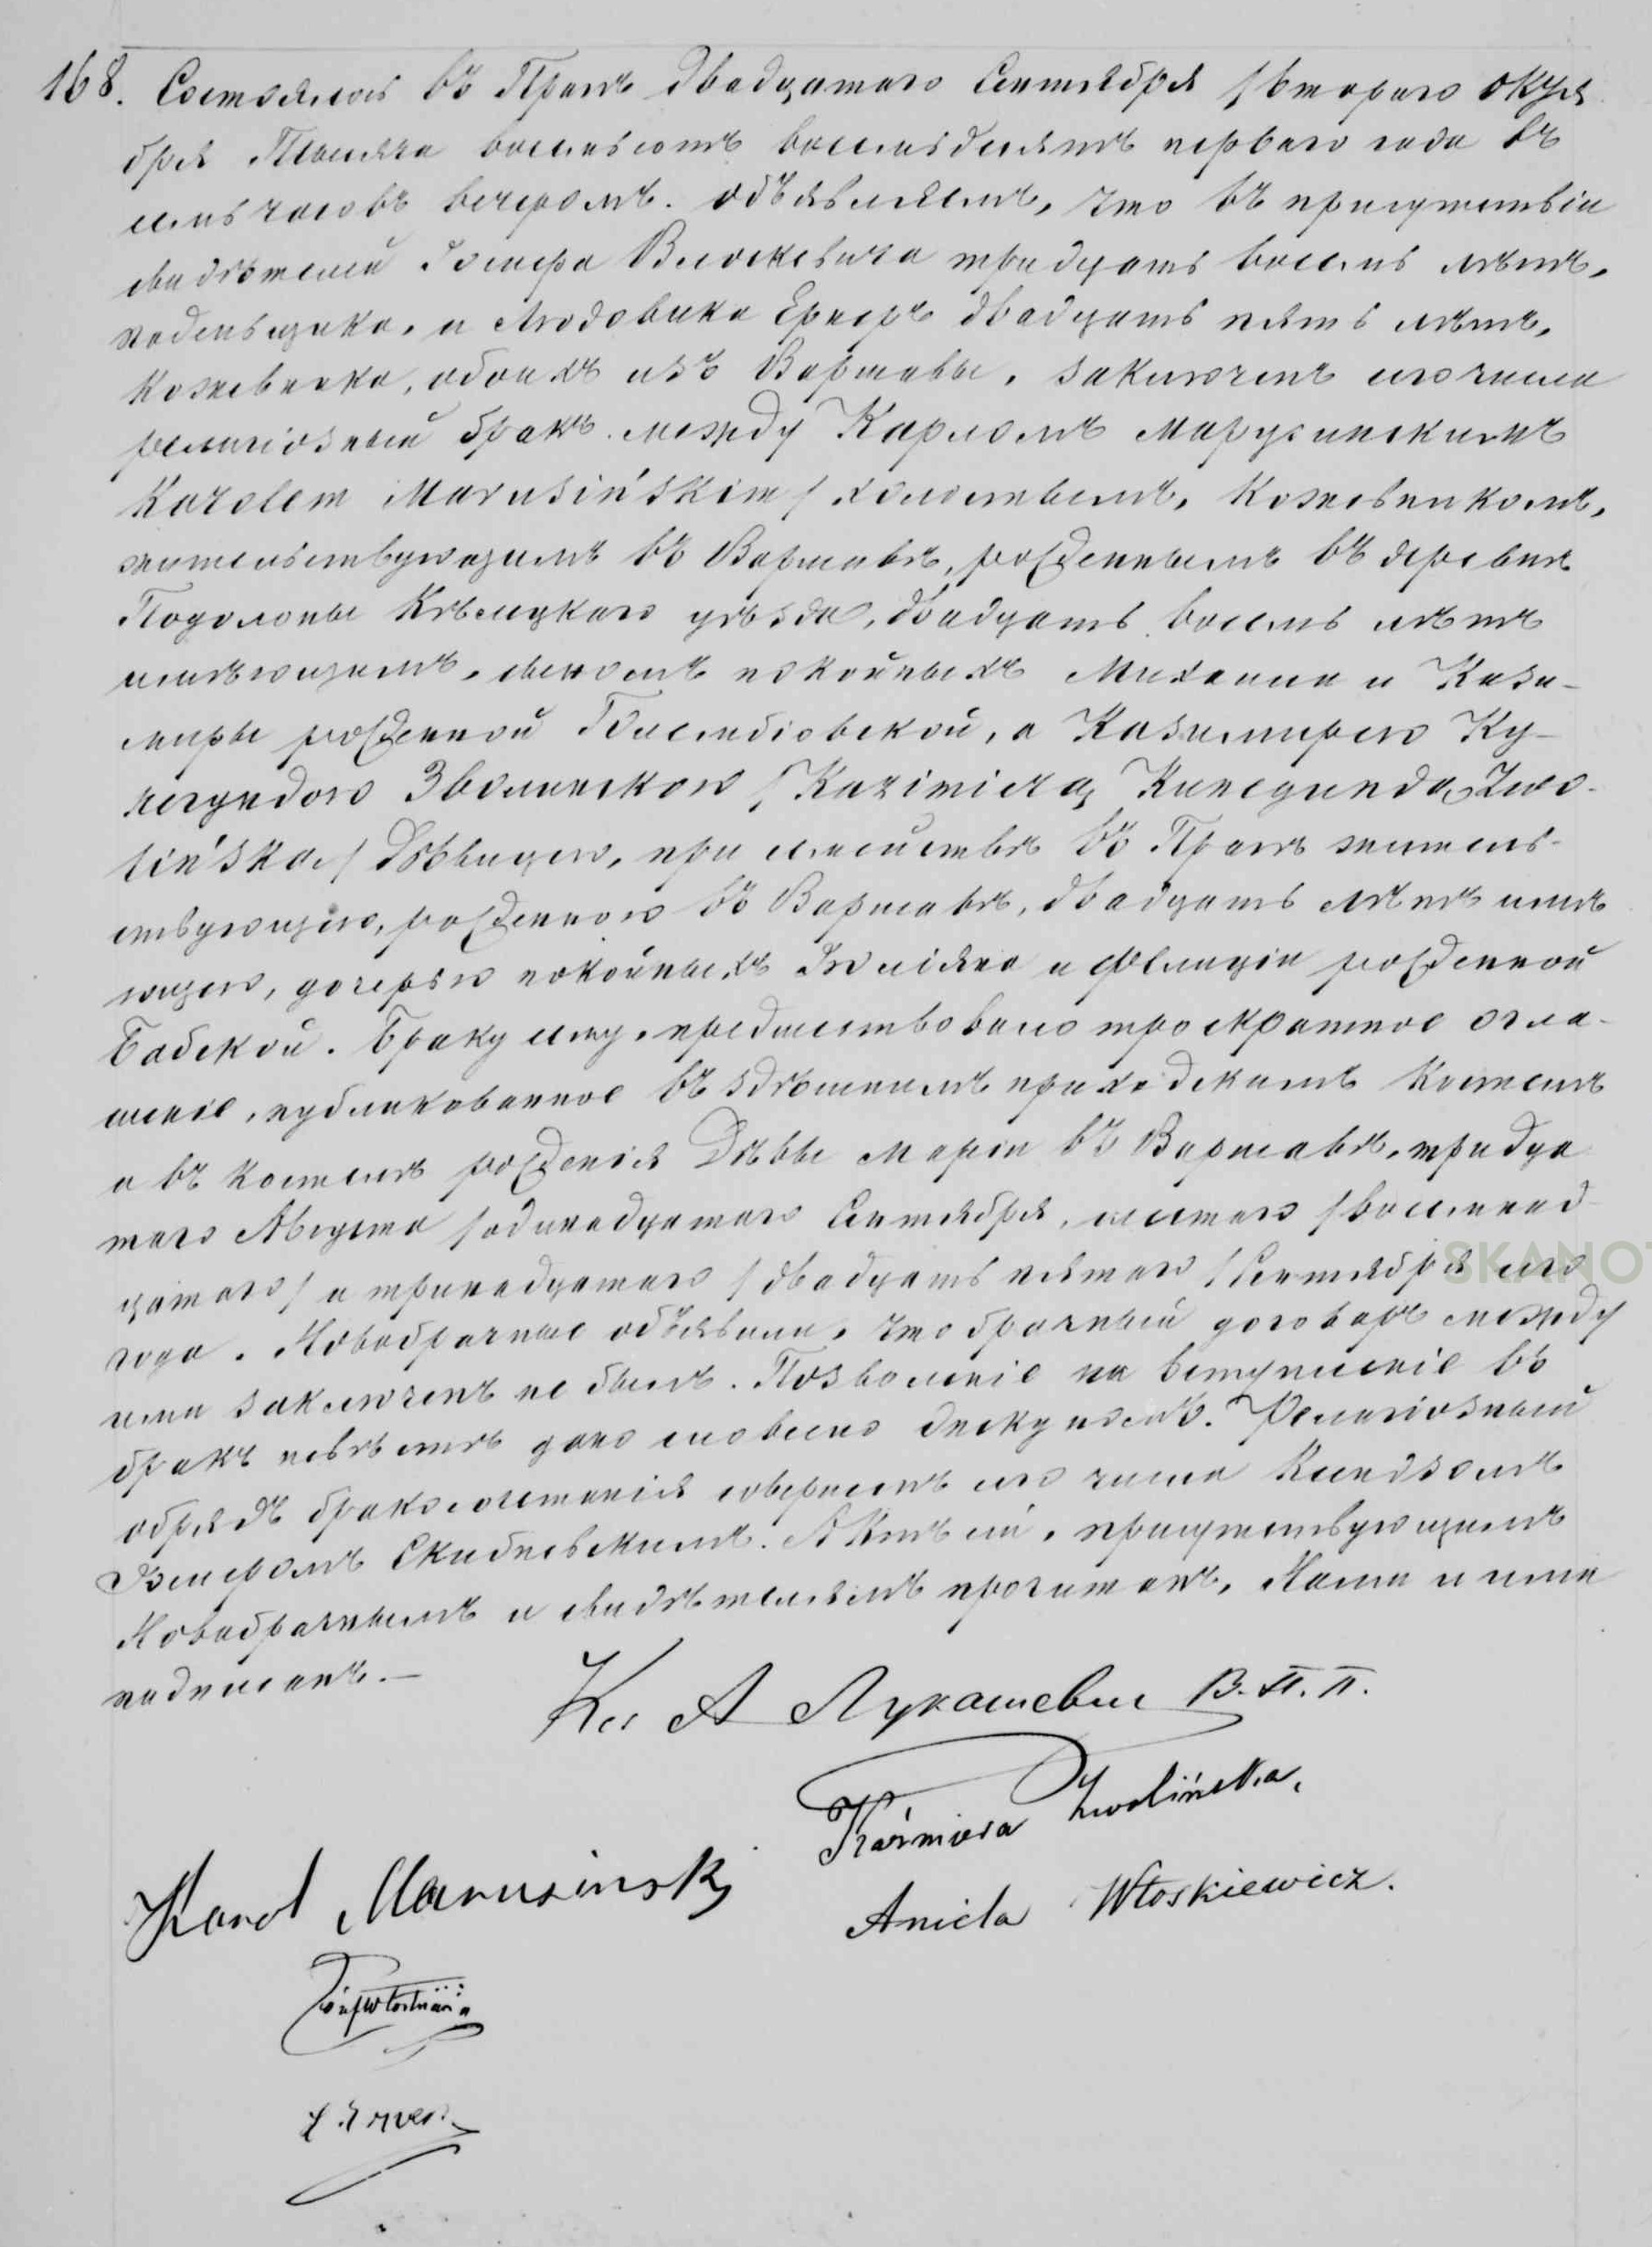 168. Состоялось въ Прагѣ двадцатаго Сентября /втораго Октя
бря Тысяча восемьсотъ восемьдесятъ перваго года въ
семь часовъ вечеромъ. Объявляемъ, что въ присутствіи
свидѣтелей Іосифа Влоскевича тридцать восемь лѣтъ,
поденьщика, и Людовика Ернеръ двадцать пять лѣтъ,
кожевника, обоихъ изъ Варшавы, заключенъ сего числа
религіозный бракъ между Карломъ Марусинскимъ
Karolem Marusińskim / холостымъ, кожевникомъ,
жительствующимъ въ Варшавѣ, рожденнымъ въ деревнѣ
Кѣлецкаго уѣзда, двадцать восемь лѣтъ
имѣющимъ, сыномъ покойныхъ Михаила и Кази-
миры рожденной Голембіовской, а Казимирою Ку-
негундою Зволинскою / Kazimierą Kunegundą Zwo-
lińską / Дѣвицею, при семействѣ въ Прагѣ житель-
ствующею, рожденною въ Варшавѣ, двадцать лѣтъ имѣ
ющею, дочерью покойныхъ Юліяна и Фелиціи рожденной
Бабской. Браку сему предшествовало троекратное огла-
шеніе, публикованное въ здѣшнимъ приходскимъ костелѣ
и въ костелѣ рожденія Дѣвы Маріи въ Варшавѣ, тридца
таго Августа /одинадцатаго Сентября, шестаго /восемнад-
цатаго/ и тринадцатаго /двадцать пятаго/ Сентября сего
года. Новобрачные объявили, что брачный договоръ между
ими заключенъ не былъ. Позволеніе на вступленіе въ
бракъ невѣстѣ дано словесно опекуномъ. Религіозный
обрядъ бракосочетанія совершенъ сего числа Ксендзомъ
Скибневскимъ. Актъ сей, присутствующимъ
Новобрачнымъ и свидѣтелямъ прочитанъ, Нами и ими
подписанъ.—
Кс А Лукашевич В. П. П.
Kaźmiera Zwolińska,
Karol Marusinski
Aniela Włoskiewicz.